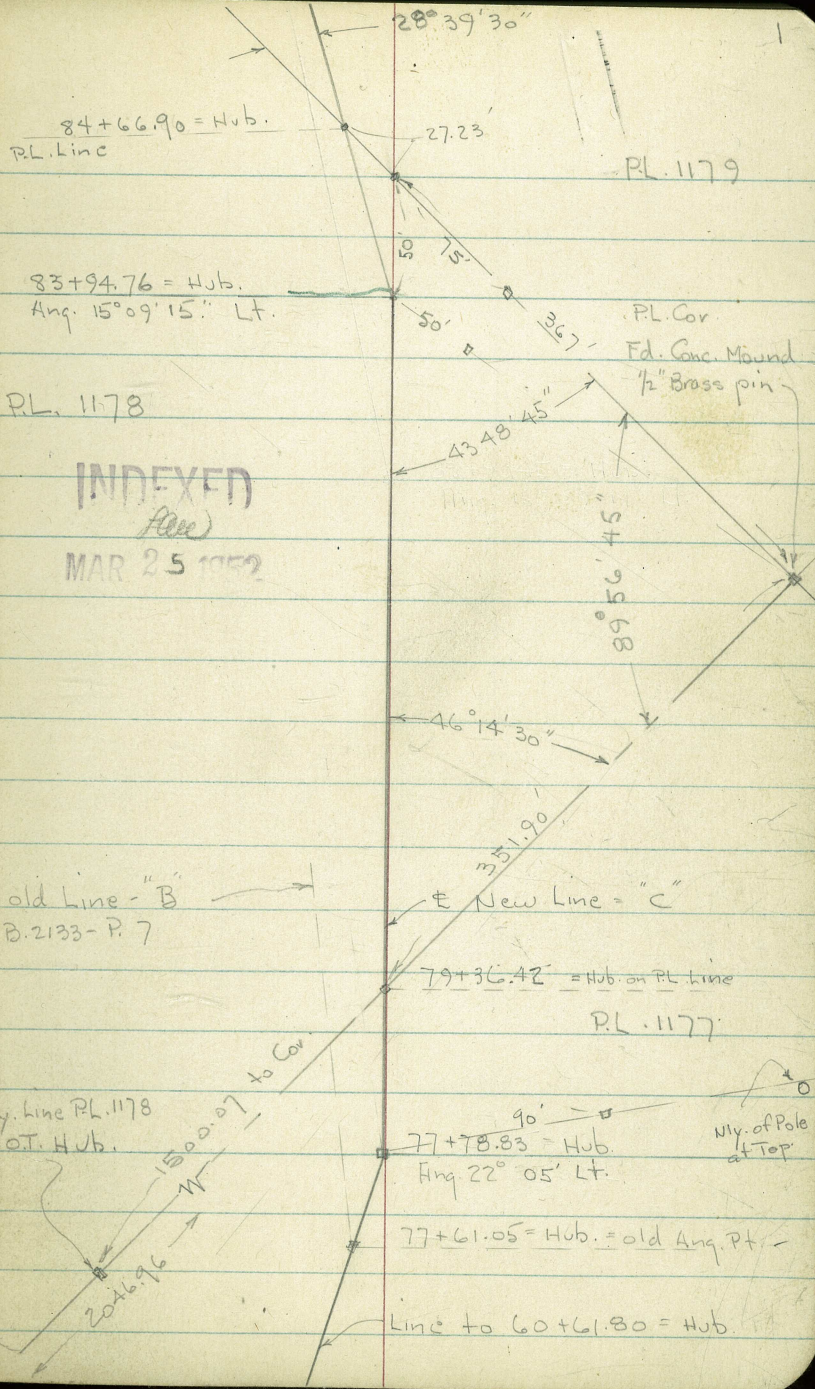 28° 39' 30"
1
84+66.90 = Hub.
P.L. Line
27.23'
P.L. 1179
50'
75'
83+94.76 = Hub.
Ang. 15°09'15." Lt.
50'
367'
P.L. Cor
Fd. Conc. Mound
1/2" Brass pin
P.L. 1178
43 48' 45"
INDEXED
MAR 25 1952
89° 56' 45"
46° 14' 30"
351.90'
old Line - "B"
B. 2133 - P. 7
℄ New Line = "C"
79+36.42 = Hub on P.L. Line
P.L. 1177
1500.07 to Cor.
y. Line P.L. 1178
O.T. Hub.
90'
Nly. of Pole
at Top.
77+78.83 = Hub
Ang. 22° 05' Lt.
77+61.05 = Hub. = old Ang. Pt.
2046.96
Line to 60+61.80 = Hub.